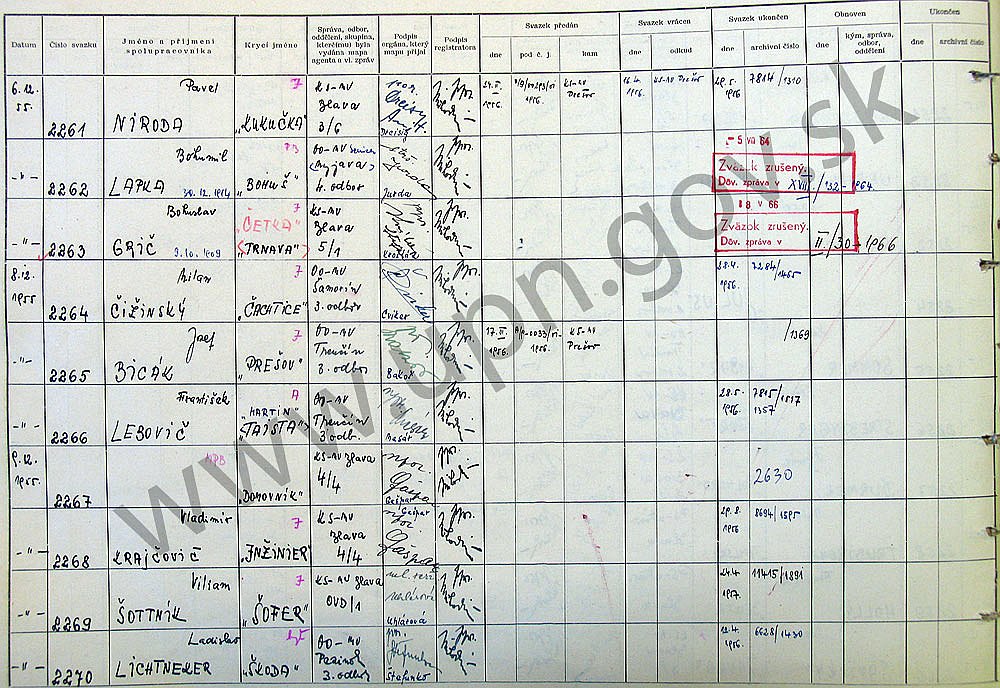 Datum
Číslo svazku
Jméno a příjmení spolupracovníka
Krycí jméno
Správa, odbor, oddělení, skupina, kterému(é) byla vydána mapa agenta a vl. zpráv
Podpis orgána, který mapu přijal
Podpis registrátora
Svazek předán
dne
pod č. j.
kam
Svazek vrácen
dne
odkud
Svazek ukončen
dne
archivní číslo
Obnoven
dne
kým, správa, odbor, oddělení
Ukončen
dne
archivní číslo
6.12.
55.
2261
Pavel
NÍRODA
„KUKUČKA"
KS-MV
Ilava
3/6
1956.
1956.
KS-MV
Prešov
16.4.
1956.
KS-MV Prešov
29.5.
1956
7814/1310
-"-
2262
Bohumil
LAPKA
30.12.1914
„BOHUŠ"
OO-MV Senica
(Myjava)
4. odbor
Jurda
- 5 VII 64
Zväzok zrušený.
Dôv. zpráva v XVII/132-1964
-"-
2263
Bohuslav
GRIČ
9.10.1909
„ČETKA"
„TRNAVA"
KS-MV
Ilava
5/1
18 V 66
Zväzok zrušený.
Dôv. zpráva v II/30-1966
8.12.
1955
2264
Milan
ČIŽINSKÝ
„ČACHTICE"
OO-MV
Šamorín
3. odbor
Cviker
1956.
7284/1465
-"-
2265
Jozef
BIČÁK
„PREŠOV"
OO-MV
Trenčín
3. odbor
Bakoš
17.II.
1956.
A/1-0033/01-
1956.
KS-MV
Prešov
/1369
-"-
2266
František
LEBOVIČ
„MARTIN"
„TAJSTA"
OO-MV
Trenčín
3. odb.
Masár
28.5.
1956.
7815/1517
1357
9.12.
1955.
2267
MPB
„DOMOVNÍK"
KS-MV Ilava
4/4
Gašpar
2630
-"-
2268
Vladimír
KRAJČOVIČ
„INŽINIER"
KS-MV
Ilava
4/4
Gašpar
29.8.
1956
8694/1595
-"-
2269
Viliam
ŠOTTNÍK
„ŠOFER"
KS-MV Ilava
OVD/1
Uhlárová
24.4.
1957.
11415/1891
-"-
2270
Ladislav
LICHTNEKER
„ŠKODA"
OO-MV
Pezinok
3. odbor
Štefanko
12.4.
1956.
6628/1430
www.upn.gov.sk